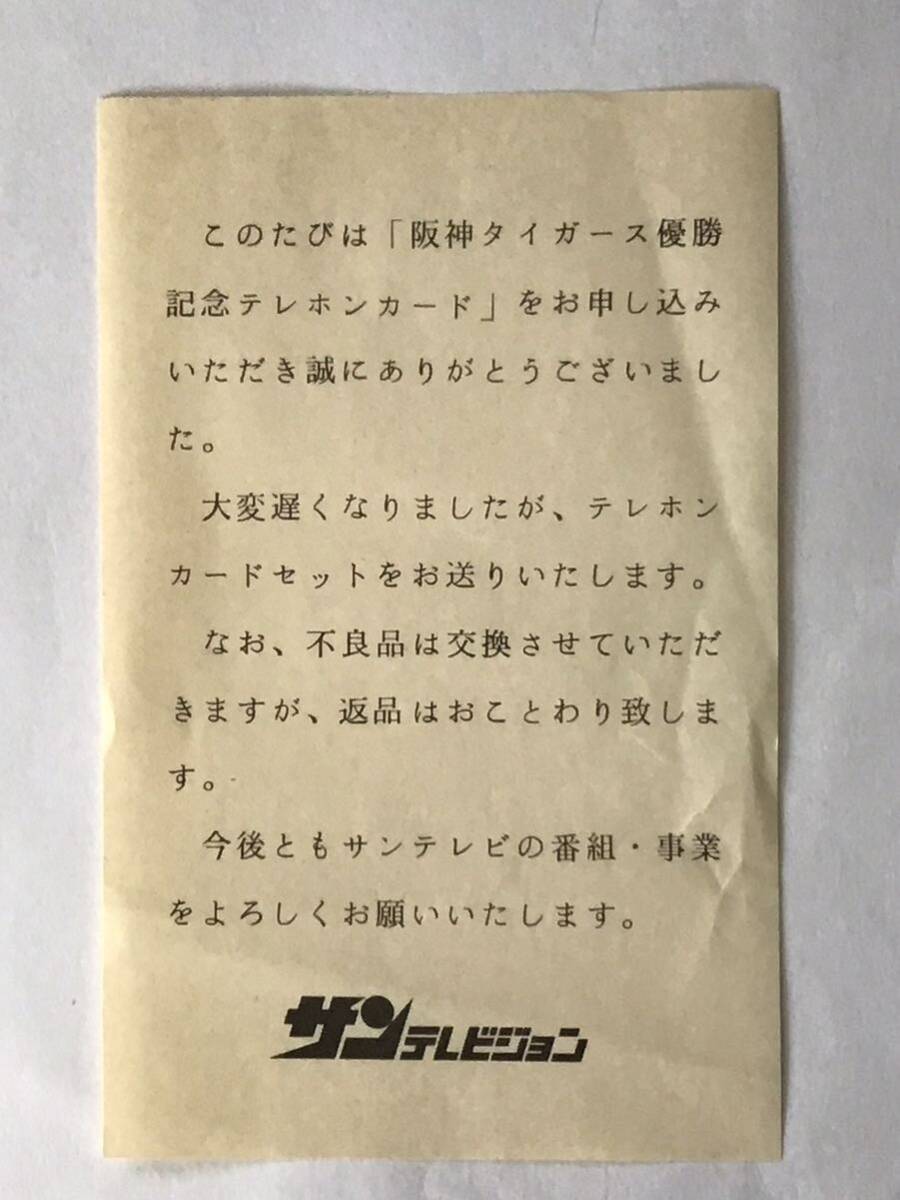 このたびは「阪神タイガース優勝
記念テレホンカード」をお申し込み
いただき誠にありがとうございまし
た。
大変遅くなりましたが、テレホン
カードセットをお送りいたします。
なお、不良品は交換させていただ
きますが、返品はおことわり致しま
す。
今後ともサンテレビの番組・事業
をよろしくお願いいたします。
サンテレビジョン